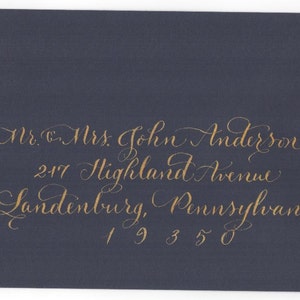 Mr. & Mrs. John Anderson
217 Highland Avenue
Landenburg, Pennsylvan
19350